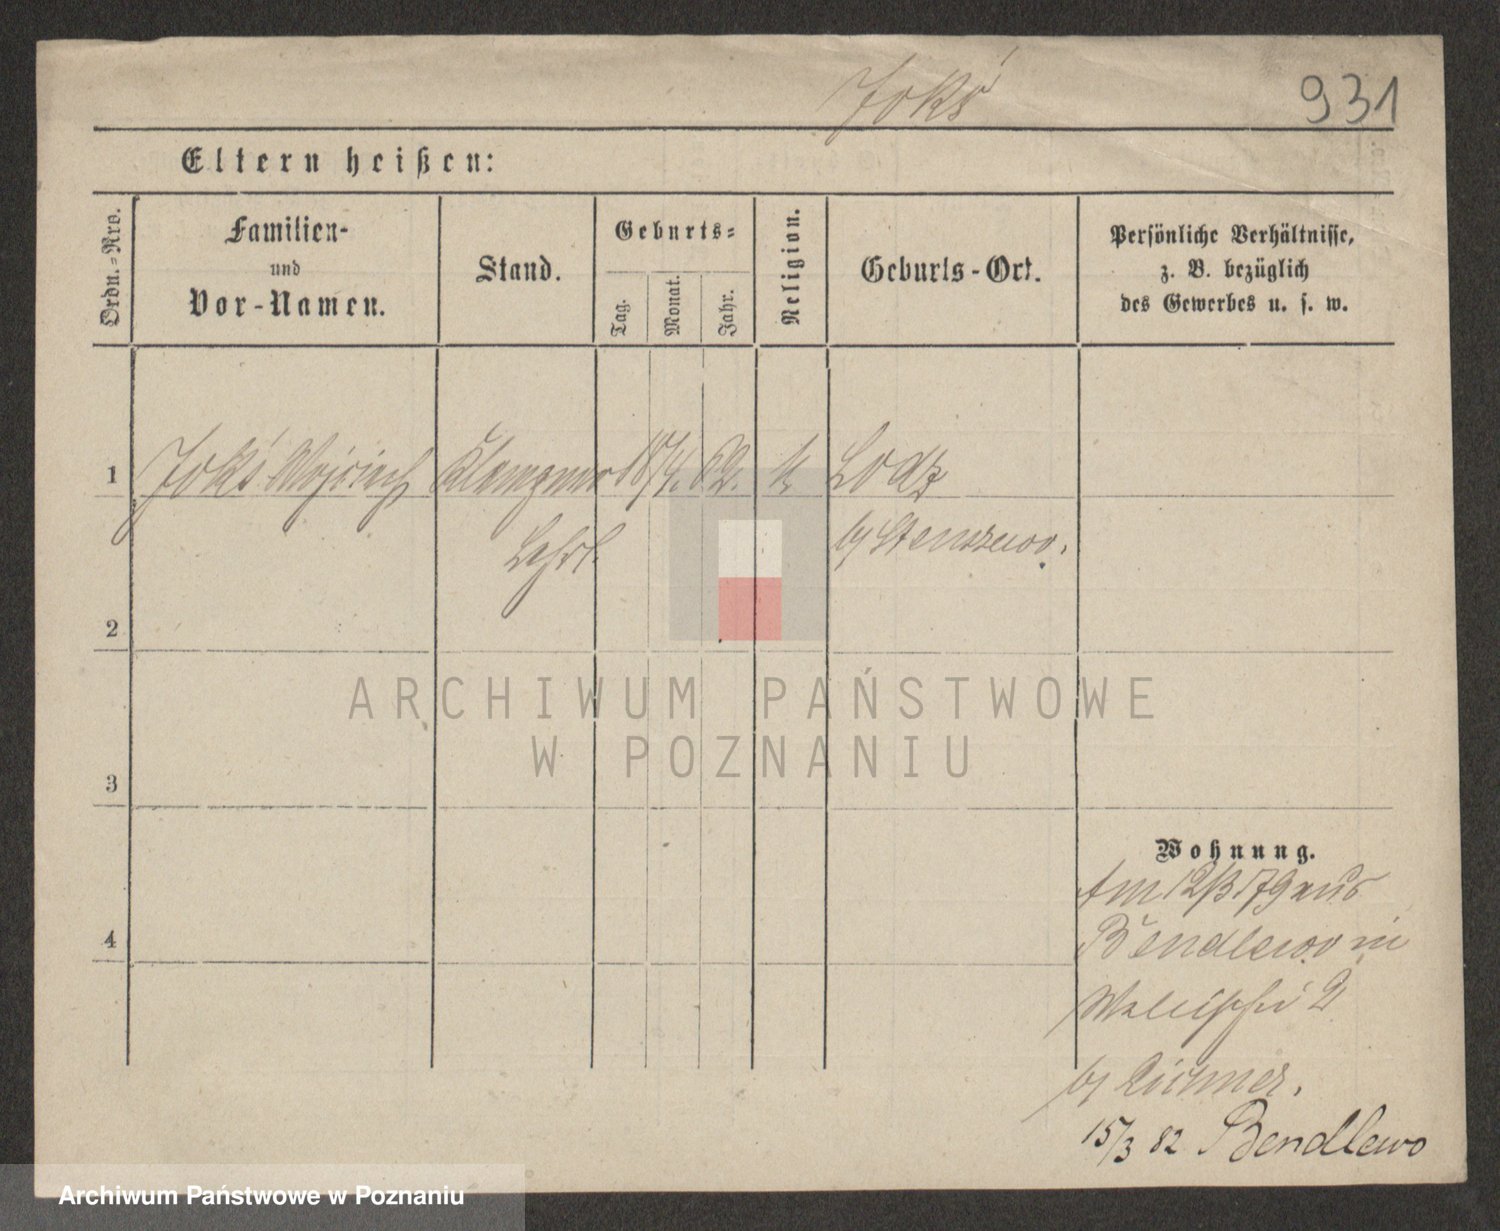 Joks
931
Eltern heißen:
Ordn.-Nro.
Familien-
und
Vor-Namen.
Stand.
Geburts-
Tag.
Monat.
Jahr.
Religion.
Geburts-Ort.
Persönliche Verhältnisse,
z. B. bezüglich
des Gewerbes u. s. w.
1
Joks Wojciech
Klempner
18/4. 62.
k
Lodz
Lehrl.
by Stenszewo.
2
ARCHIWUM PAŃSTWOWE
W POZNANIU
3
Wohnung.
Am 12/3 79 aus
4
Bendlewo in
Wallischei 2
by
15/3 82 Bendlewo
Archiwum Państwowe w Poznaniu